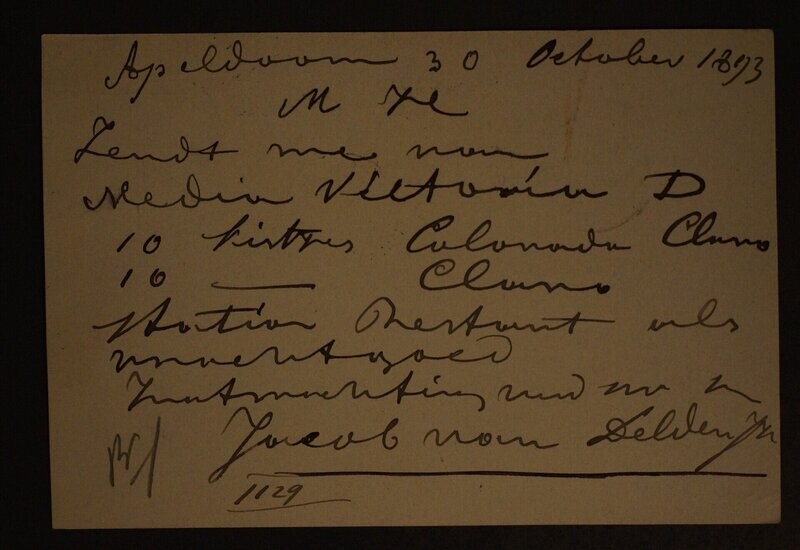 Apeldoorn 30 October 1893
M H
Zendt me van
Media Victoria D
10 kistjes Colorado Claro
10 — Claro
Station Restant als
vrachtgoed
Jacob van Delden Jr
1129